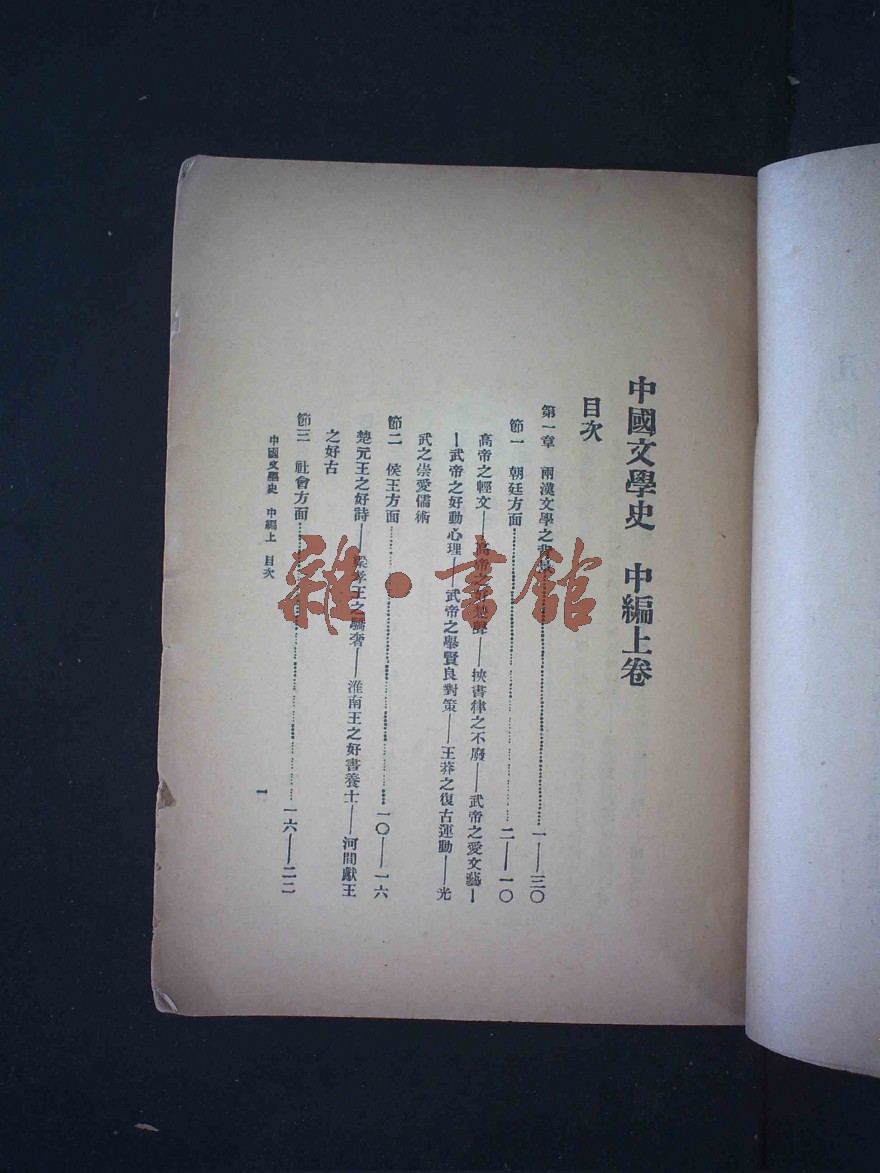 中國文學史　中編上卷
目次
第一章　兩漢文學之背景……一——三〇
節一　朝廷方面……二——一〇
高帝之輕文——高帝之好楚聲——挾書律之不廢——武帝之愛文藝—
—武帝之好動心理——武帝之舉賢良對策——王莽之復古運動——光
武之崇愛儒術
節二　侯王方面……一〇——一六
楚元王之好詩——梁孝王之驕奢——淮南王之好書養士——河間獻王
之好古
節三　社會方面……一六——二二
中國文學史　中編上　目次
一
雜·書館